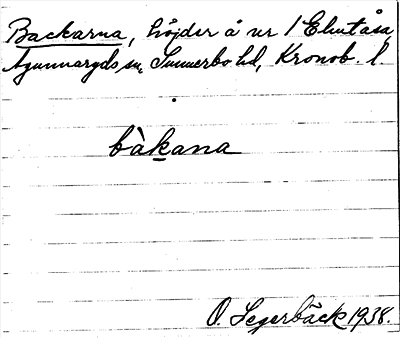 Backarna, höjder å nr 1 Elmtåsa,
Agunnaryds sn, Sunnerbo hd, Kronob. l.
bàkana
O. Segerbäck 1938.